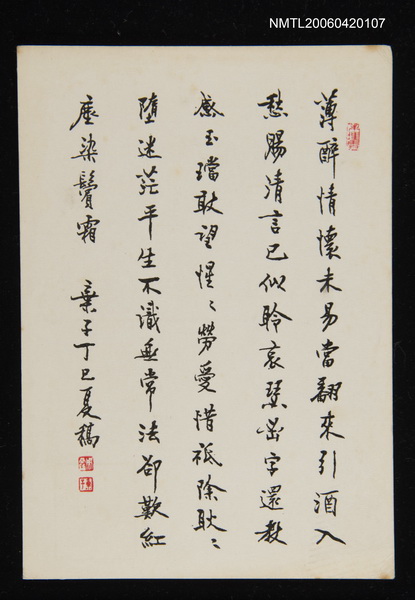 NMTL20060420107
薄醉情懷未易當翻來引酒入
愁腸清言已似聆哀瑟密字還教
感玉璫敢望惺〻勞愛惜祇除耿〻
墮迷茫平生不識無常法卻歎紅
塵染鬢霜　棄子丁巳夏稿